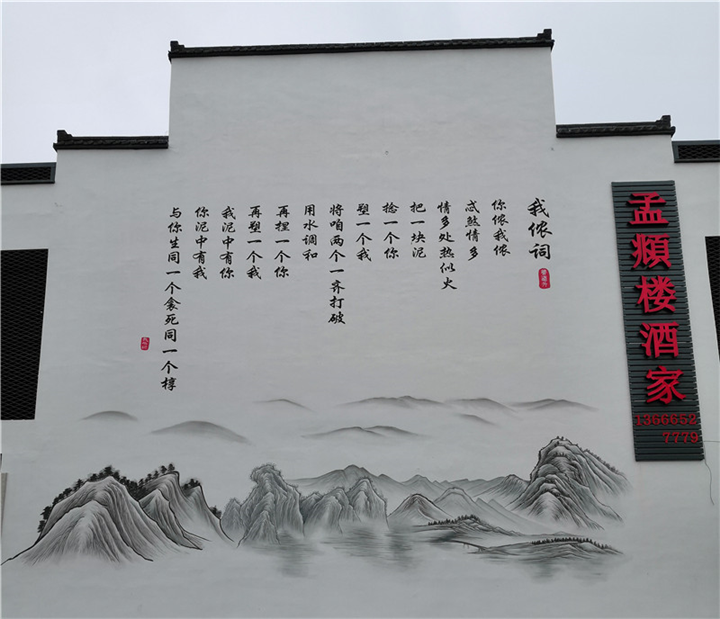 我侬词
你侬我侬
忒煞情多
情多处热似火
把一块泥
捻一个你
塑一个我
将咱两个一齐打破
用水调和
再捏一个你
再塑一个我
我泥中有你
你泥中有我
与你生同一个衾死同一个椁
孟頫楼酒家
1366652
7779